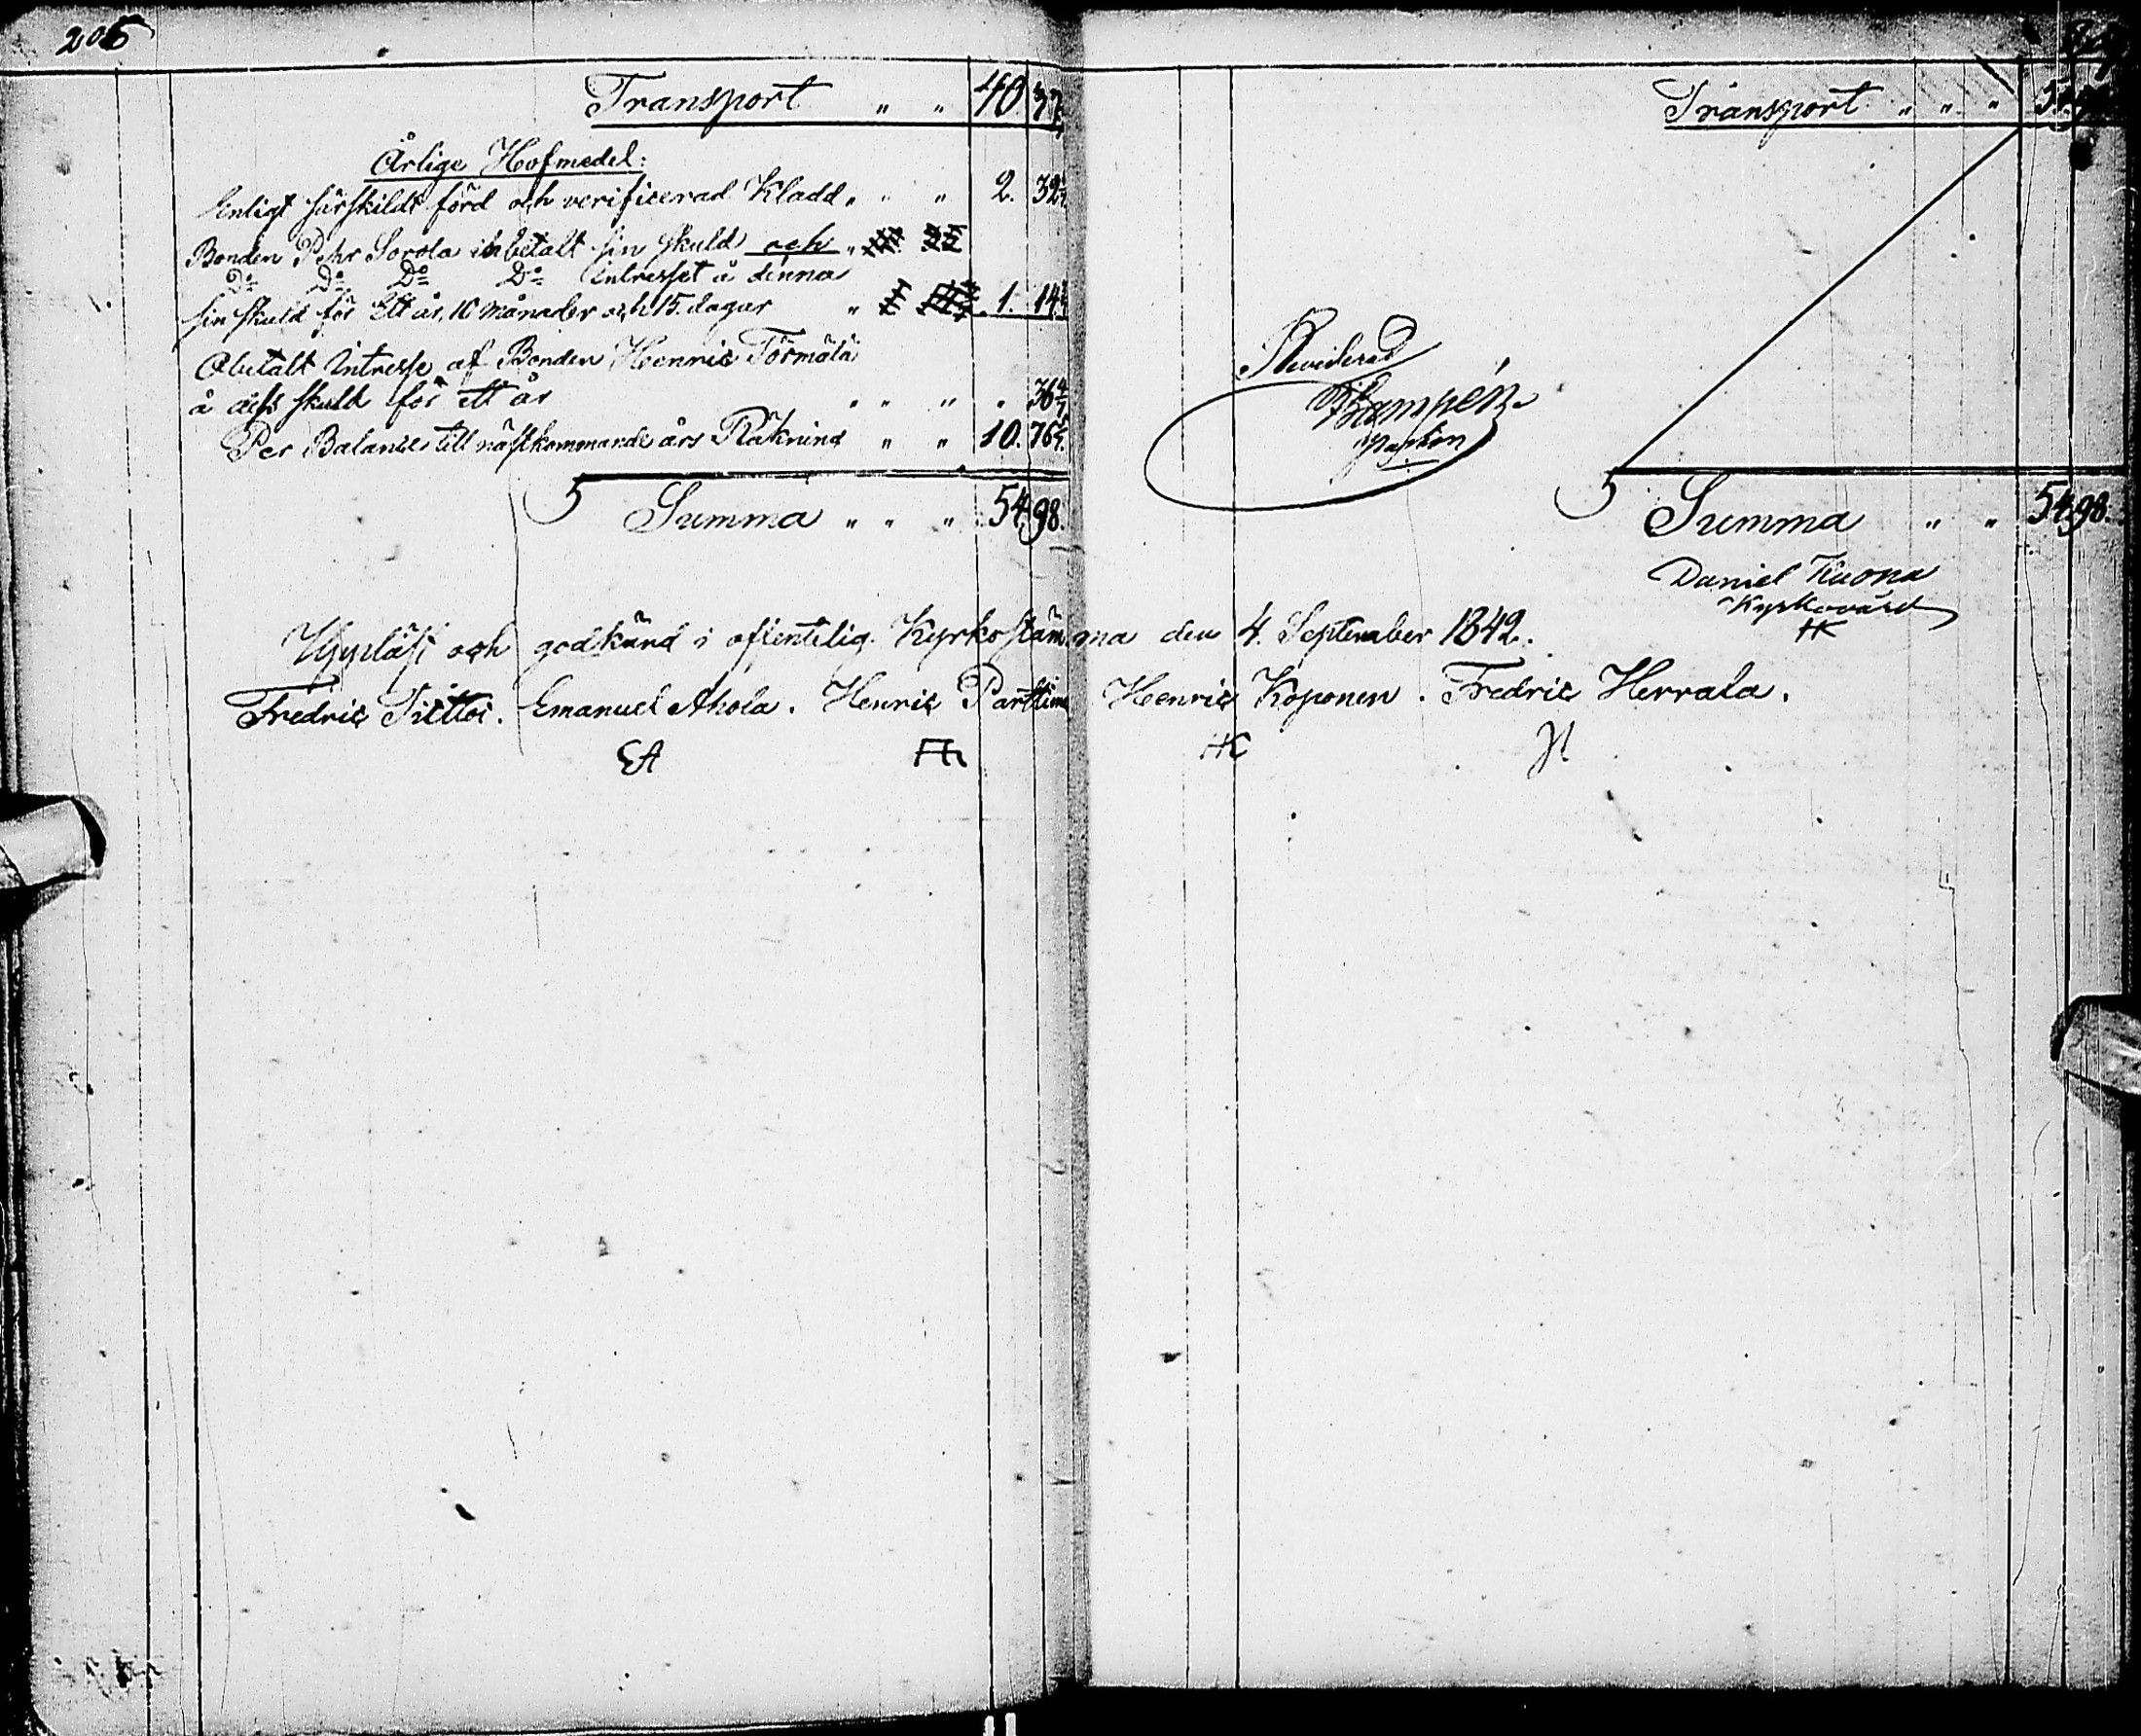 206
Transport " " 40. 37
Årlige Hofmedel:
Enligt särskildt förd och verificerad Kladd " " " 2. 32
Bonden Pehr Sorola inbetalt sin skuld och "
Do Do Do Do Intresset å denna
sin skuld för Ett år, 10 månader och 15. dagar " 1. 14
Obetalt Intresse af Bonden Henric Törmälä
å dess skuld för ett år " " " " 36 4/7
Per Balance till nästkommande års Räkning " " 10. 76
Summa " " " 54. 98.
Transport " " "
Revideras
Summa " " 54. 98.
Daniel Kuona
Kyrkovärd
HK
Uppläst och godkänd i offentelig Kyrkostämma den 4. September 1842.
Fredric Tittoi. Emanuel Ahola. Henric Parttim Henric Koponen. Fredric Herrala.
EA HK